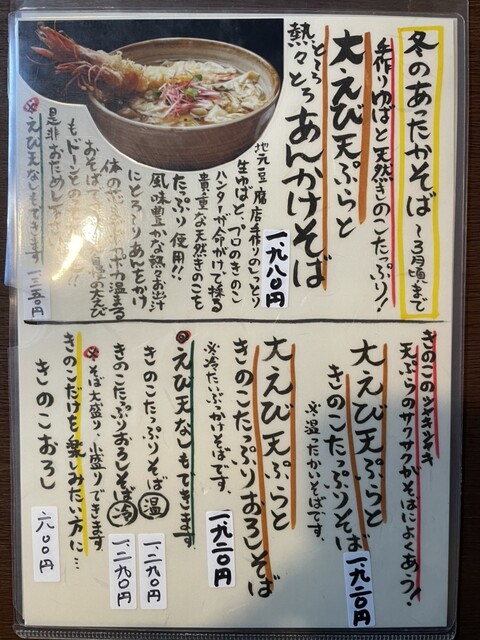 冬のあったかそば 〜3月頃まで
手作りゆばと天然きのこたっぷり!
大えび天ぷらと
とろ〜り
熱々とろ あんかけそば
1.980円
地元豆腐店手作りのしっとり
生ゆばと、プロのきのこ
ハンターが命がけで採る
貴重な天然きのこを
たっぷり使用!!
風味豊かな熱々お出汁
にとろ〜りあんをかけ
体の
ポカ温まる
おそばで
自慢の大えび
もドーンとの
是非おためし下さい
※えび天なしもできます
1.350円
きのこのシャキシャキ
天ぷらのサクサクがそばによくあう!
大えび天ぷらと
きのこたっぷりそば
※温ったかいそばです。
1.920円
大えび天ぷらと
きのこたっぷりおろしそば
※冷たいぶっかけそばです。
1.920円
◎えび天なしもできます
きのこたっぷりそば 温
1.290円
きのこたっぷりおろしそば 冷
1.290円
※そば大盛り、小盛りできます
きのこだけを楽しみたい方に…
きのこおろし
六00円